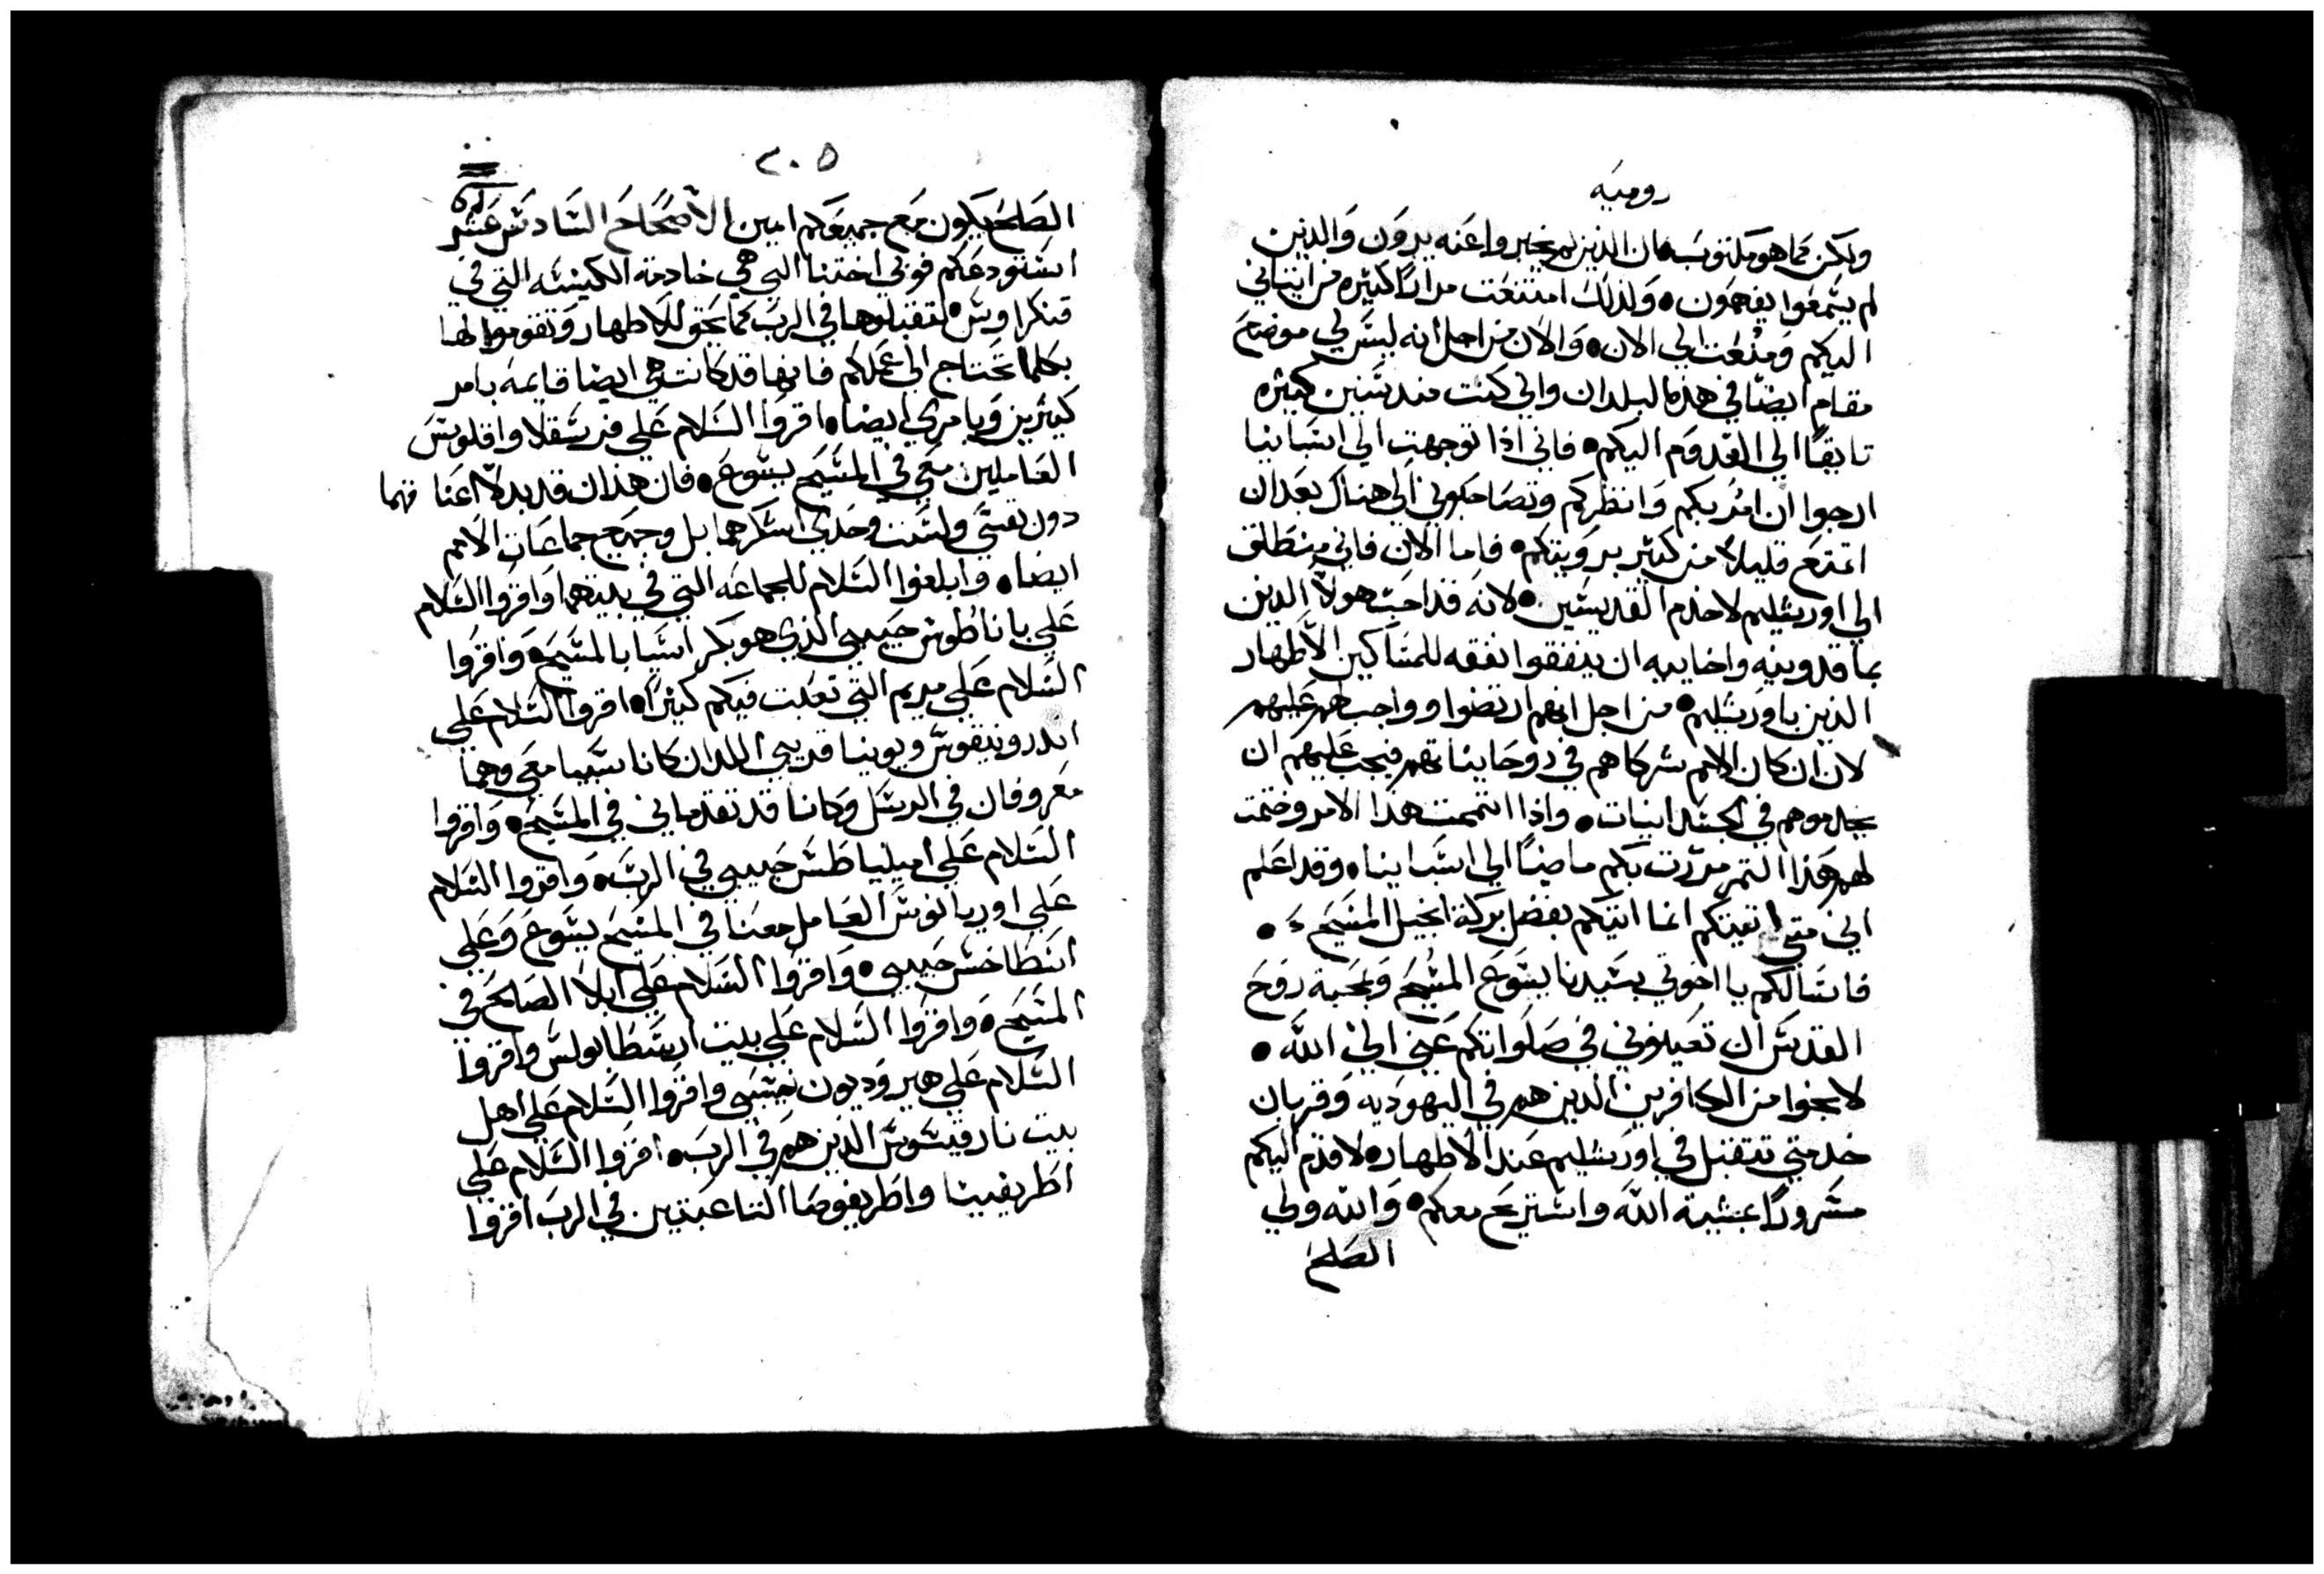 روميه
ولكن كما هو مكتوب ان الذين لم يخبروا عنه يرون والذين
لم يسمعوا يفهمون • ولذلك امتنعت مرارًا كثيره من اتياني
اليكم ومنعت الي الان • والان من اجل انه ليس لي موضع
مقام ايضا في هذه البلدان واني كنت منذ سنين كثيره
تايقًا الي القدوم اليكم • فاني اذا توجهت الي اسبانيا
ارجوا ان امر بكم وانظركم وتصاحبوني الي هناك بعد ان
اتمتع قليلا من كثير برويتكم • فاما الان فاني منطلق
الي اورشليم لاخدم القديسين • لانه قد احب هولا الذين
بماقدونيه واخاييه ان ينفقوا نفقه للمساكين الاطهار
الذين باورشليم • من اجل انهم ارتضوا وواجب لهم عليهم
لان ان كان الامم شركاهم في روحانياتهم فيجب عليهم ان
يخدموهم في الجسدانيات • واذا اتممت هذا الامر وختمت
لهم هذا الثمر مررت بكم ماضيًا الي اسبانيا • وقد اعلم
اني متي اتيتكم انما اتيكم بفضل بركة انجيل المسيح •
فانسالكم يا اخوتي بسيدنا يسوع المسيح وبمحبة روح
القدس ان تعينوني في صلواتكم عني الي الله •
لانجوا من الكافرين الذين هم في اليهوديه وقربان
خدمتي تتقبل في اورشليم عند الاطهار • لاقدم اليكم
مسرورًا بمشية الله واستريح معكم • والله ولي
الصلح
٢٠٥
الصلح يكون مع جميعكم امين الاصحاح السادس عشر
استودعكم فوبي اختنا التي هي خادمة الكنيسه التي في
قنكراوس • لتقبلوها في الرب كما يحق للاطهار وتقوموا لها
بكلما تحتاج الي عملكم فانها قد كانت هي ايضا قايمه بامر
كثيرين وبامري ايضا • اقروا السلام علي فرسقلا واقلوس
العاملين معي في المسيح يسوع • فان هذان قد بدلا اعناقهما
دون نفسي ولست وحدي اشكرهما بل وجميع جماعات الامم
ايضا • وابلغوا السلام للجماعه التي في بيتهما واقروا السلام
علي باناطوس حبيبي الذي هو بكر اسيا بالمسيح • واقروا
السلام علي مريم التي تعبت فيكم كثيرًا • اقروا السلام علي
اندرونيقوس ويونيا قريبي اللدان كانا سبيا معي وهما
معروفان في الرسل وكانا قد تقدماني في المسيح • واقروا
السلام علي امپلياطس حبيبي في الرب • واقروا السلام
علي اوربانوس العامل معنا في المسيح يسوع وعلي
اسطاخس حبيبي • واقروا السلام علي ابلا الصالح في
المسيح • واقروا السلام علي بيت ارسطابولس واقروا
السلام علي هيروديون نسيبي واقروا السلام علي اهل
بيت نارقيسوس الذين هم في الرب • اقروا السلام علي
اطريفينا واطريفوصا التاعبتين في الرب اقروا